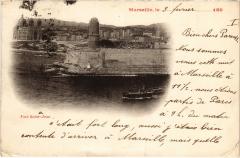 Marseille, le 3 février 189
I
Bien chers Parents
Nous sommes
venus cette nuit
à Marseille à
11h, nous étions
partis de Paris
à 9h. du matin
Fort Saint-Jean
c'était fort long, aussi j'étais bien
contente d'arriver à Marseille, mais quelle